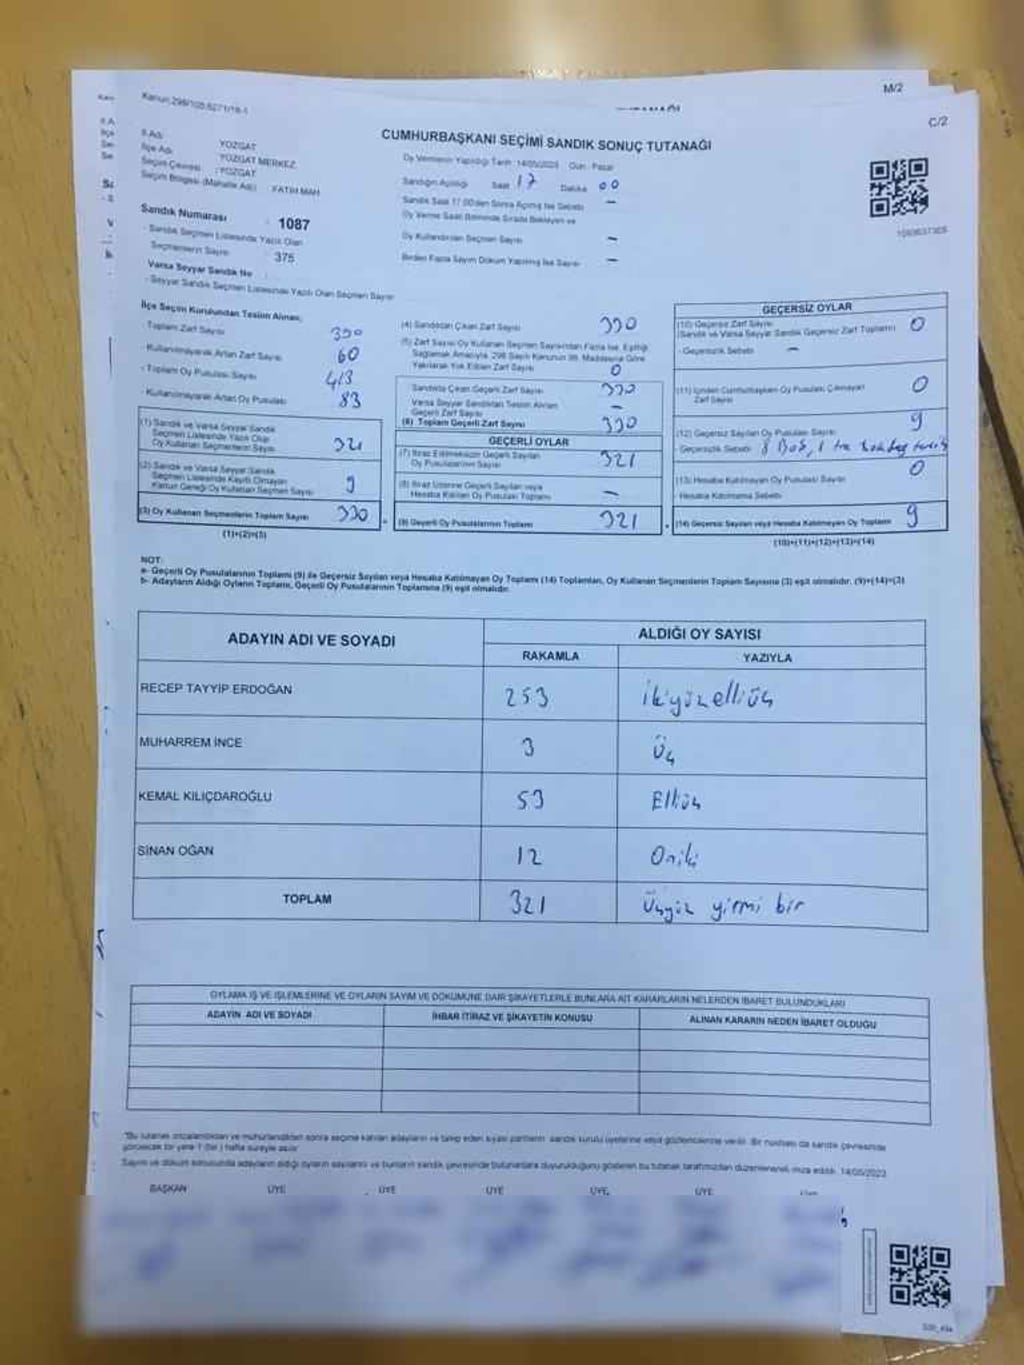 M/2
C/2
Kanun: 298/105,6271/18-1
CUMHURBAŞKANI SEÇİMİ SANDIK SONUÇ TUTANAĞI
İl Adı YOZGAT
İlçe Adı YOZGAT MERKEZ
Seçim Çevresi : YOZGAT
Seçim Bölgesi (Mahalle Adı) FATİH MAH
Sandık Numarası : 1087
- Sandık Seçmen Listesinde Yazılı Olan
Seçmenlerin Sayısı : 375
Varsa Seyyar Sandık No :
- Seyyar Sandık Seçmen Listesinde Yazılı Olan Seçmen Sayısı
Oy Vermenin Yapıldığı Tarih : 14/05/2023 Gün : Pazar
Sandığın Açıldığı Saat 17 Dakika 00
Sandık Saat 17.00'den Sonra Açılmış İse Sebebi –
Oy Verme Saati Bitiminde Sırada Bekleyen ve
Oy Kullandırılan Seçmen Sayısı –
Birden Fazla Sayım Döküm Yapılmış İse Sayısı –
İlçe Seçim Kurulundan Teslim Alınan;
- Toplam Zarf Sayısı 390
- Kullanılmayarak Artan Zarf Sayısı 60
- Toplam Oy Pusulası Sayısı 413
- Kullanılmayarak Artan Oy Pusulası 83
(1) Sandık ve Varsa Seyyar Sandık
Seçmen Listesinde Yazılı Olup
Oy Kullanan Seçmenlerin Sayısı 321
(2) Sandık ve Varsa Seyyar Sandık
Seçmen Listesinde Kayıtlı Olmayan
Kanun Gereği Oy Kullanan Seçmen Sayısı 9
(3) Oy Kullanan Seçmenlerin Toplam Sayısı 330
(1)+(2)=(3)
(4) Sandıktan Çıkan Zarf Sayısı 330
(5) Zarf Sayısı Oy Kullanan Seçmen Sayısından Fazla İse, Eşitliği
Sağlamak Amacıyla, 298 Sayılı Kanunun 98. Maddesine Göre
Yakılarak Yok Edilen Zarf Sayısı 0
Sandıkta Çıkan Geçerli Zarf Sayısı 330
Varsa Seyyar Sandıktan Teslim Alınan
Geçerli Zarf Sayısı –
(6) Toplam Geçerli Zarf Sayısı 330
GEÇERLİ OYLAR
(7) İtiraz Edilmeksizin Geçerli Sayılan
Oy Pusulalarının Sayısı 321
(8) İtiraz Üzerine Geçerli Sayılan veya
Hesaba Katılan Oy Pusulası Toplamı –
(9) Geçerli Oy Pusulalarının Toplamı 321
GEÇERSİZ OYLAR
(10) Geçersiz Zarf Sayısı
(Sandık ve Varsa Seyyar Sandık Geçersiz Zarf Toplamı) 0
- Geçersizlik Sebebi –
(11) İçinden Cumhurbaşkanı Oy Pusulası Çıkmayan
Zarf Sayısı 0
(12) Geçersiz Sayılan Oy Pusulası Sayısı 9
- Geçersizlik Sebebi 8 Boş, 1
(13) Hesaba Katılmayan Oy Pusulası Sayısı 0
- Hesaba Katılmama Sebebi
(14) Geçersiz Sayılan veya Hesaba Katılmayan Oy Toplamı 9
(10)+(11)+(12)+(13)=(14)
NOT:
a- Geçerli Oy Pusulalarının Toplamı (9) ile Geçersiz Sayılan veya Hesaba Katılmayan Oy Toplamı (14) Toplamları, Oy Kullanan Seçmenlerin Toplam Sayısına (3) eşit olmalıdır. (9)+(14)=(3)
b- Adayların Aldığı Oyların Toplamı, Geçerli Oy Pusulalarının Toplamına (9) eşit olmalıdır.
ADAYIN ADI VE SOYADI ALDIĞI OY SAYISI
RAKAMLA YAZIYLA
RECEP TAYYİP ERDOĞAN 253 ikiyüzelliüç
MUHARREM İNCE 3 Üç
KEMAL KILIÇDAROĞLU 53 Elliüç
SİNAN OĞAN 12 Oniki
TOPLAM 321 Üçyüz yirmi bir
OYLAMA İŞ VE İŞLEMLERİNE VE OYLARIN SAYIM VE DÖKÜMÜNE DAİR ŞİKAYETLERLE BUNLARA AİT KARARLARIN NELERDEN İBARET BULUNDUKLARI
ADAYIN ADI VE SOYADI İHBAR İTİRAZ VE ŞİKAYETİN KONUSU ALINAN KARARIN NEDEN İBARET OLDUĞU
*Bu tutanak imzalandıktan ve mühürlendikten sonra seçime katılan adayların ve takip eden siyasi partilerin sandık kurulu üyelerine veya gözlemcilerine verilir. Bir nüshası da sandık çevresinde
görülecek bir yere 1 (bir) hafta süreyle asılır
Sayım ve döküm sonucunda adayların aldığı oyların sayılarını ve bunların sandık çevresinde bulunanlara duyurulduğunu gösteren bu tutanak tarafımızdan düzenlenerek imza edildi. 14/05/2023
BAŞKAN ÜYE ÜYE ÜYE ÜYE ÜYE